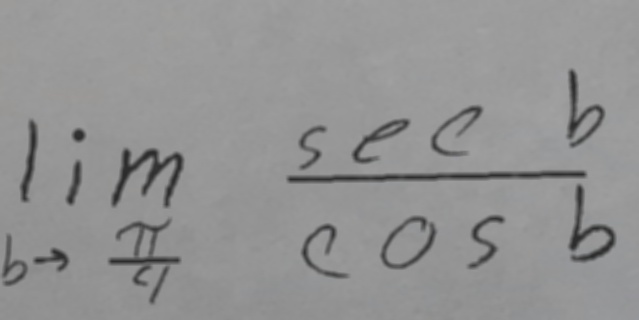 lim_{b→\frac{π}{4}} \frac{sec b}{cos b}